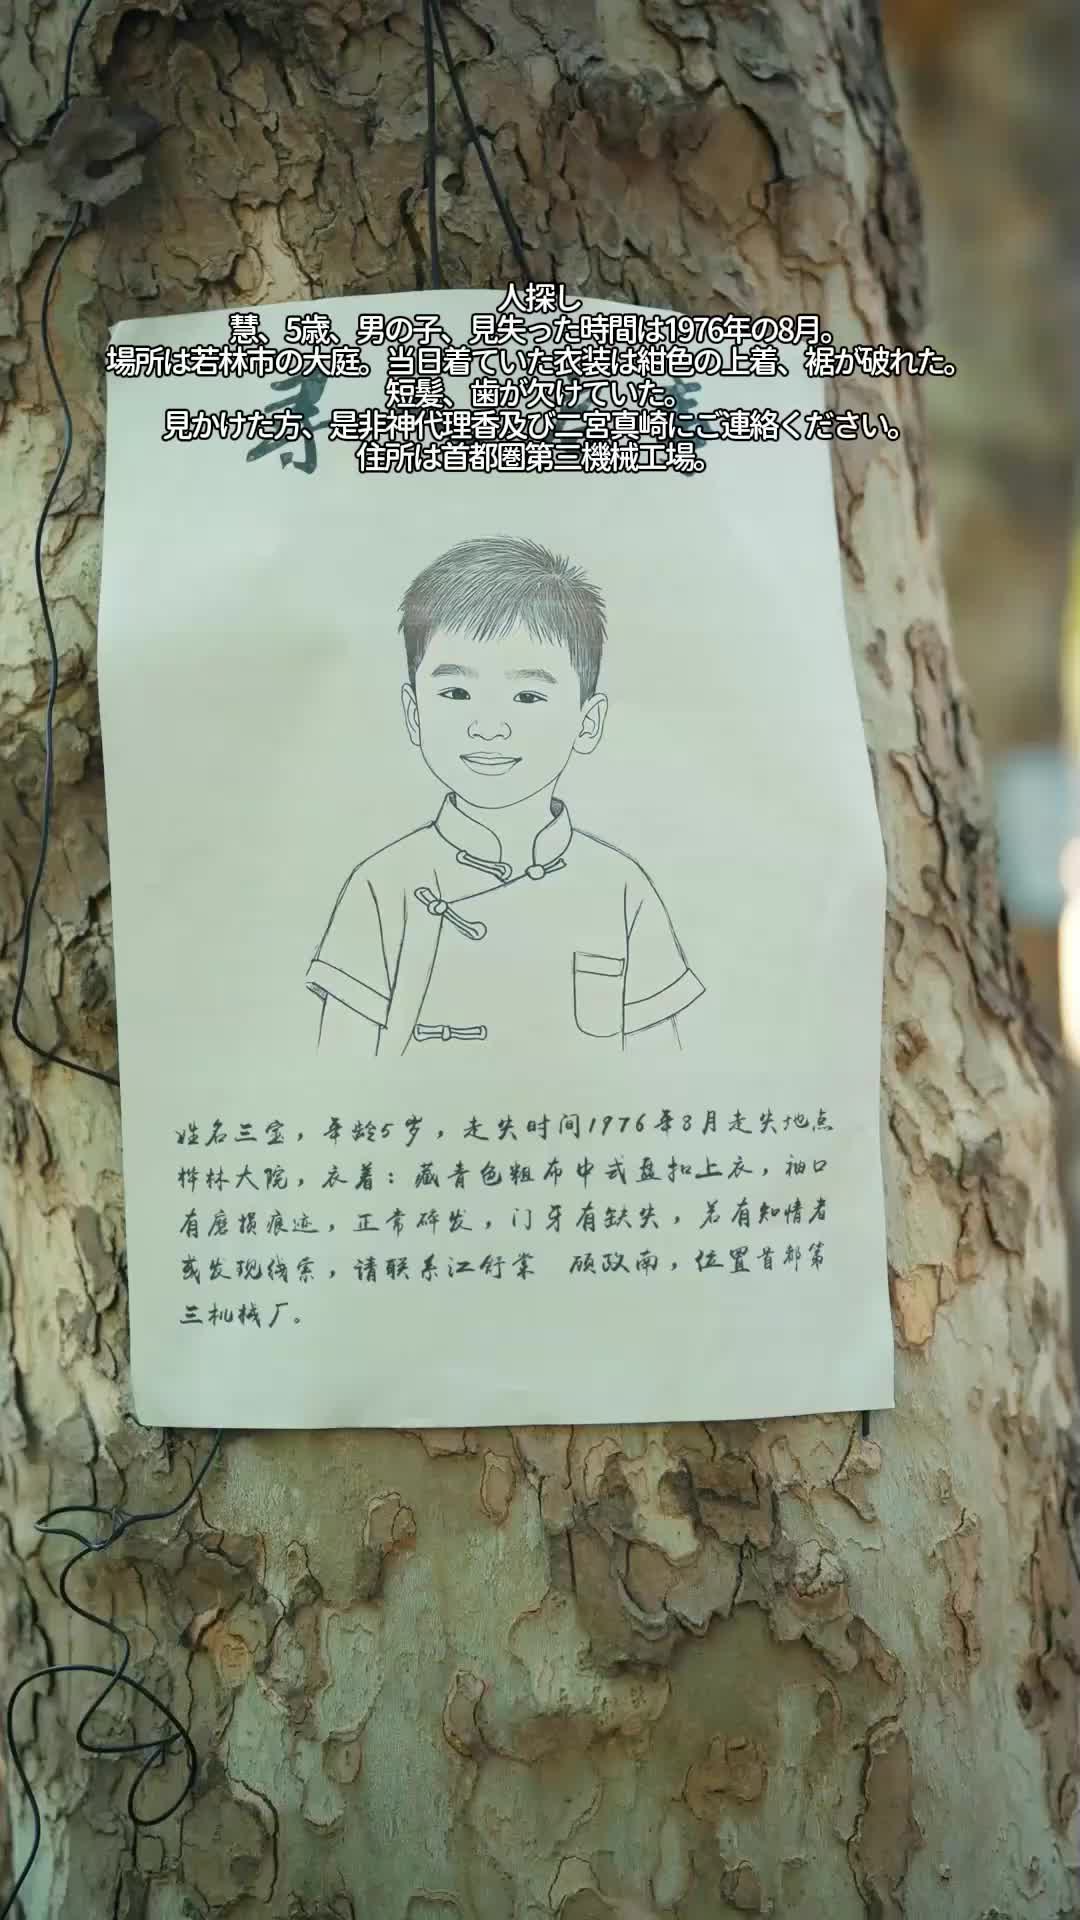 人探し
慧、5歳、男の子、見失った時間は1976年の8月。
場所は若林市の大庭。当日着ていた衣装は紺色の上着、裾が破れた。
短髪、歯が欠けていた。
見かけた方、是非神代理香及び二宮真崎にご連絡ください。
住所は首都圏第三機械工場。
寻
姓名三宝，年龄5岁，走失时间1976年8月走失地点
桦林大院，衣着：藏青色粗布中式盘扣上衣，袖口
有磨损痕迹，正常碎发，门牙有缺失，若有知情者
或发现线索，请联系江舒棠 顾政南，位置首都第
三机械厂。